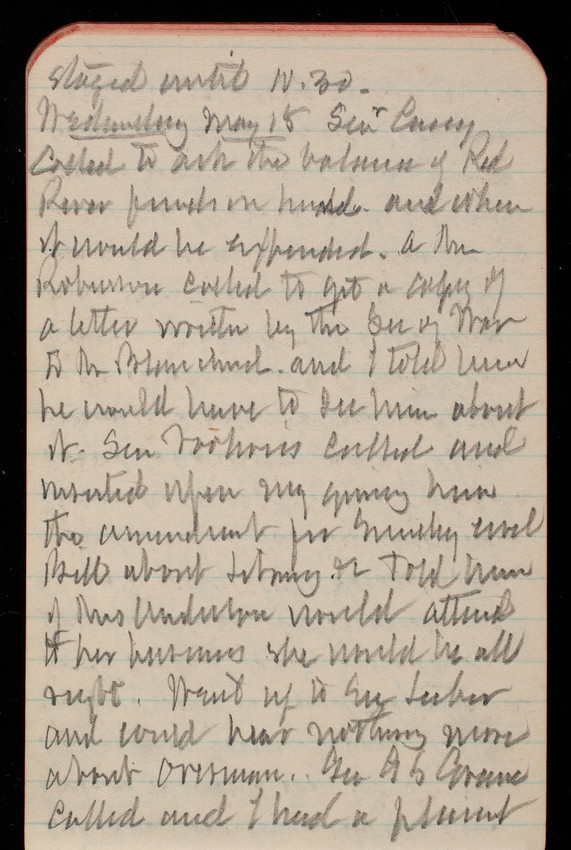 Stayed until 10.30.
Wednesday May 18 Senr Casey
Called to ask the balance of Red
River funds on hand. and when
it would be expended. A Mr
Roberson called to get a copy of
a letter written by the Sec of War
to Mr Blanchard. and I told him
he would have to see him about
it. Sen Voorhees called and
insisted upon my giving him
the amendment for Sundry civil
Bill about Library. I told him
if Mrs Anderson would attend
to her business she would be all
right. Went up to
and could hear nothing more
about Overman.. Gen Crane
called and I had a pleasant